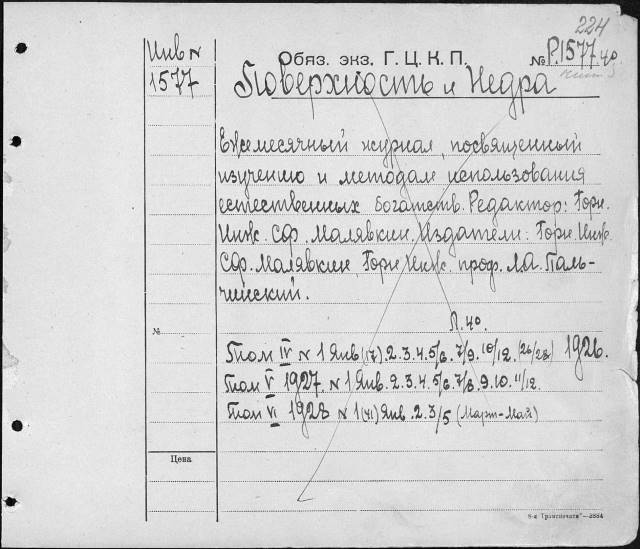 224
Инв №
1577
Обяз. экз. Г. Ц. К. П. № Р.1577.40
Поверхность и Недра
Ежемесячный журнал, посвященный
изучению и методам использования
естественных богатств. Редактор: Горн.
Инж. С.Ф. Малявкин. Издатели: Горн. Инж.
С.Ф. Малявкин, Горн. Инж. проф. П.А. Паль-
чинский.
П.40.
№
Том IV № 1 Янв(17).2.3.4.5/6.7/9.10/12.(26/28) 1926.
Том V 1927. № 1 Янв.2.3.4.5/6.7/8.9.10.11/12.
Том VI 1928 № 1(41) Янв.2.3/5 (Март-Май)
Цена
6-я Транспечать"—2884